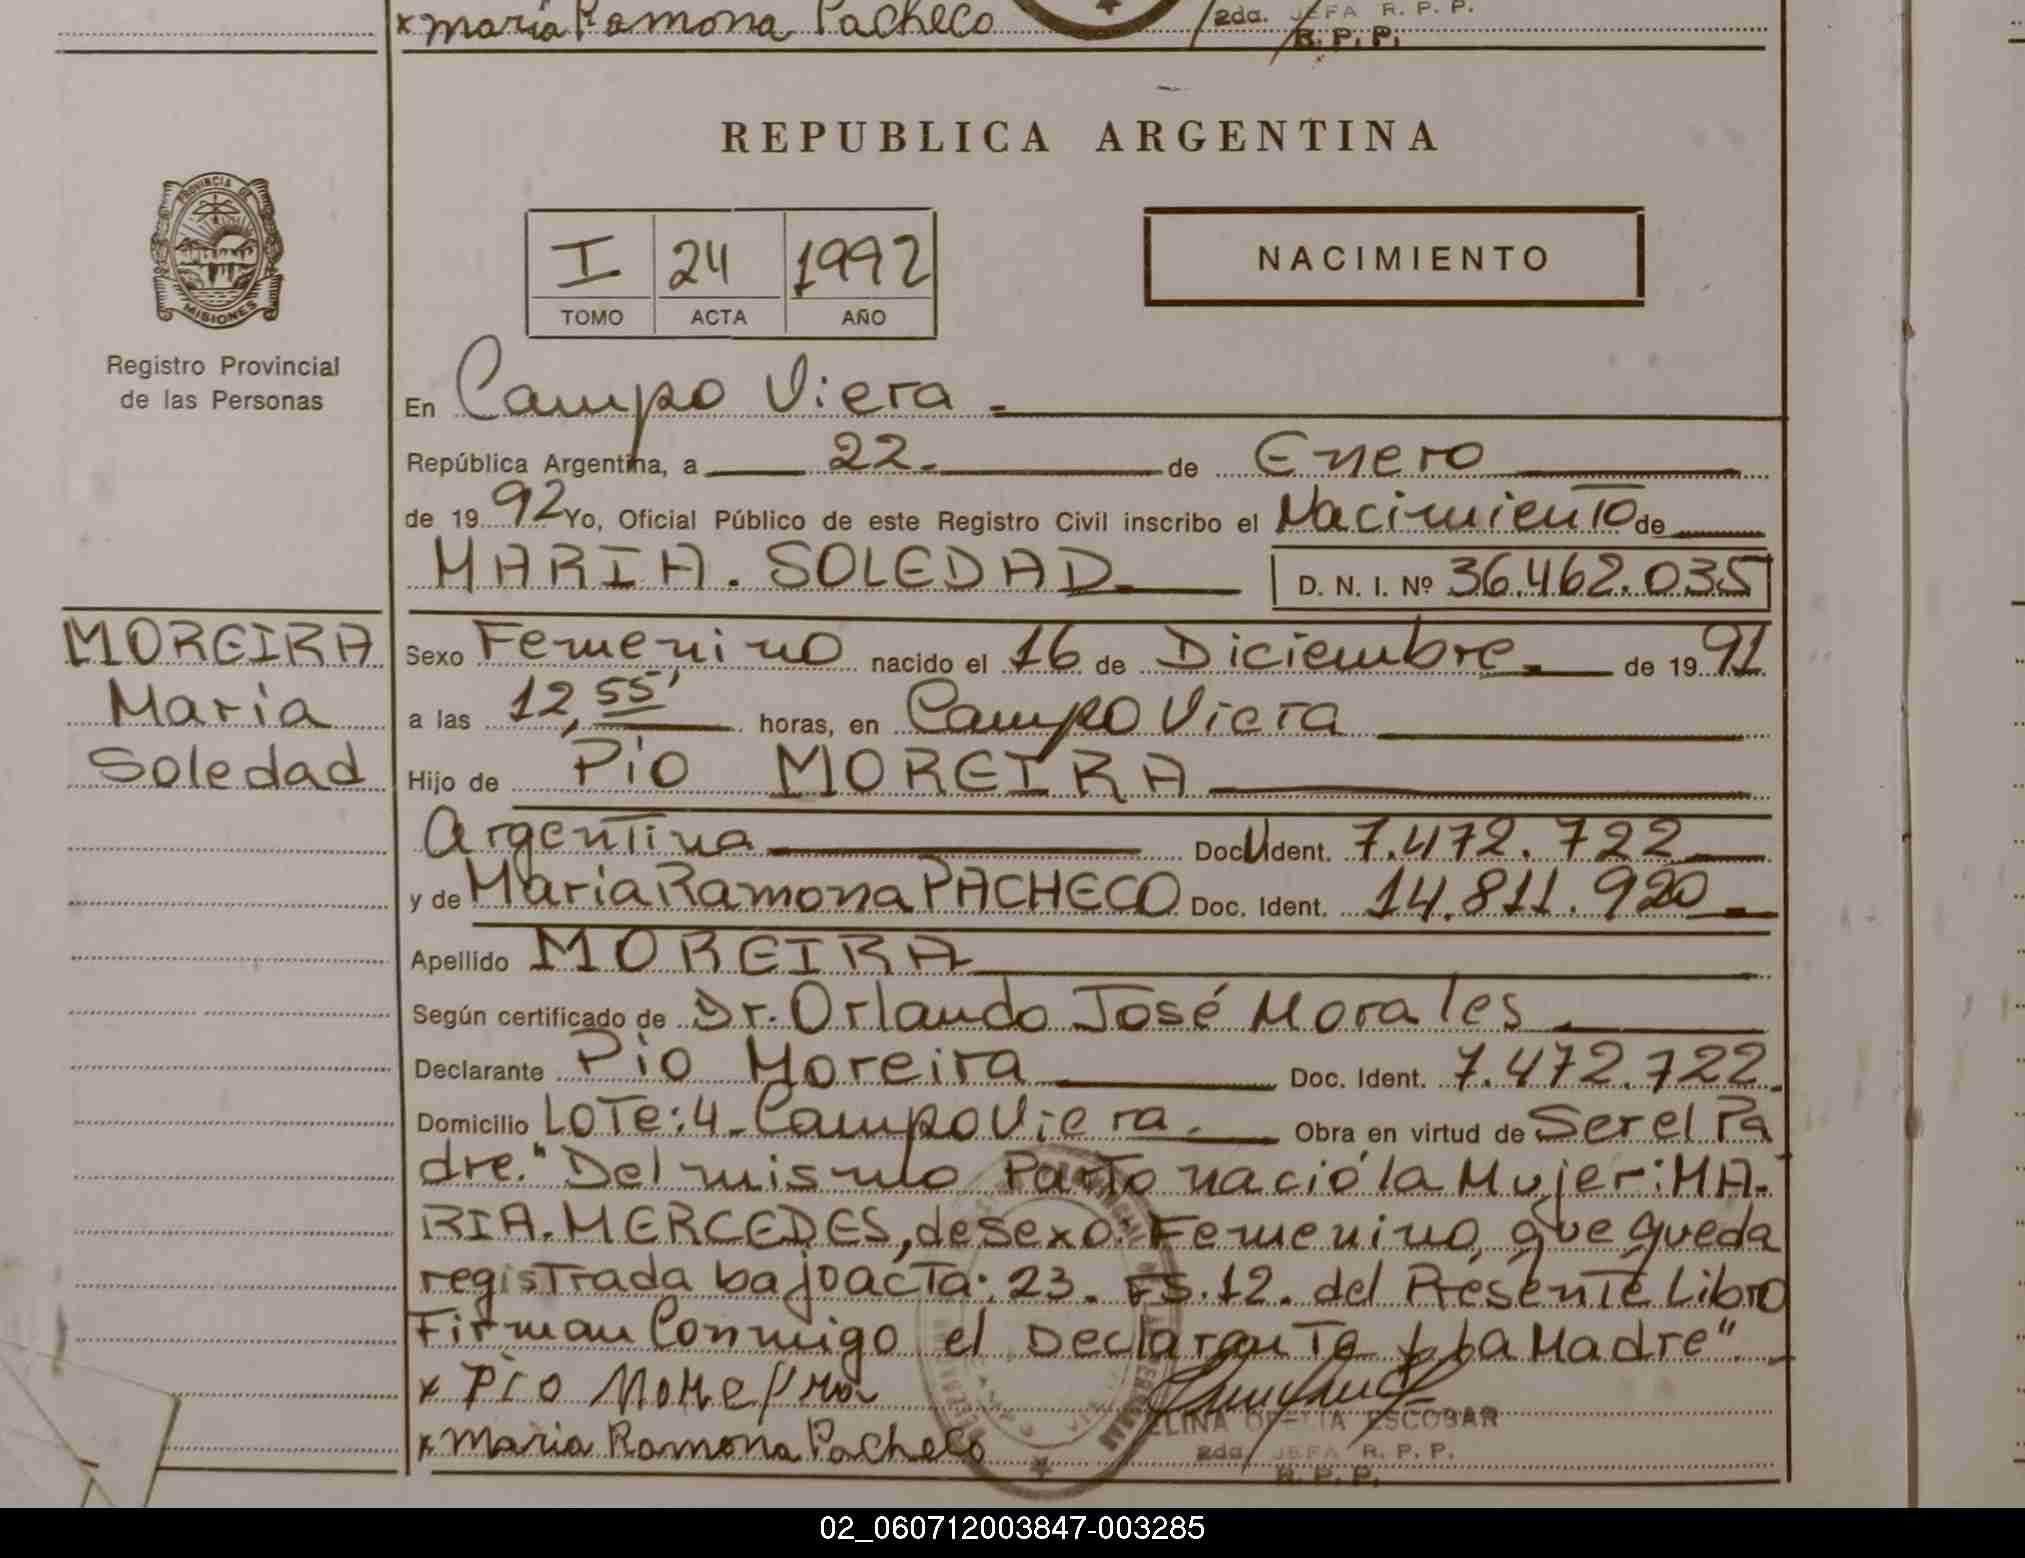 x Maria Ramona Pacheco
2da. JEFA R. P. P.
R. P. P.
REPUBLICA ARGENTINA
PROVINCIA DE
MISIONES
Registro Provincial
de las Personas
I 24 1992
TOMO ACTA AÑO
NACIMIENTO
En Campo Viera
República Argentina, a 22 de Enero
de 1992 Yo, Oficial Público de este Registro Civil inscribo el Nacimiento de
MARIA. SOLEDAD D. N. I. Nº 36.462.035
MOREIRA
Maria
Soledad
Sexo Femenino nacido el 16 de Diciembre de 1991
a las 12,55' horas, en Campo Viera
Hijo de Pio MOREIRA
Argentina Doc. Ident. 7.472.722
y de Maria Ramona PACHECO Doc. Ident. 14.811.920
Apellido MOREIRA
Según certificado de Dr. Orlando José Morales
Declarante Pio Moreira Doc. Ident. 7.472.722
Domicilio LOTE: 4 - Campo Viera. Obra en virtud de Ser el Pa
dre. "Del mismo Parto nació la Mujer: MA-
RIA. MERCEDES, de sexo: Femenino, que queda
registrada bajo acta: 23. FS. 12. del Presente Libro
Firman Conmigo el Declarante y La Madre".
x Pio Moreira
ELINA OFELIA ESCOBAR
x Maria Ramona Pacheco
2da. JEFA R. P. P.
R. P. P.
02_060712003847-003285